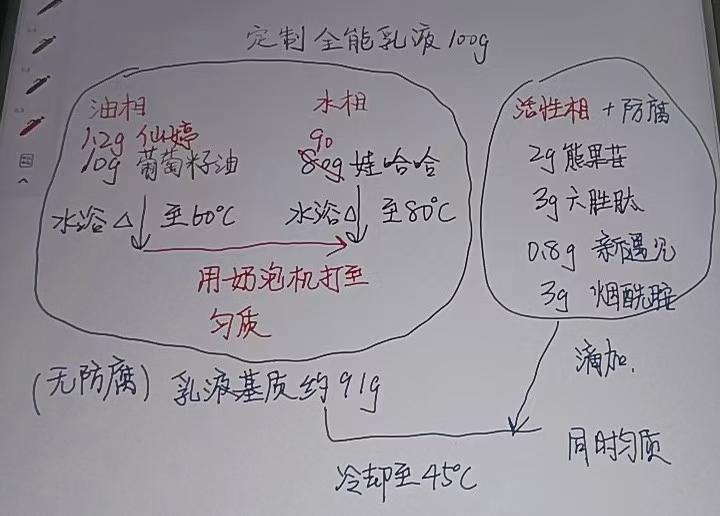 定制全能乳液100g
油相
1.2g 仙婷
10g 葡萄籽油
水浴△ 至60℃
水相
90
80g 娃哈哈
水浴△ 至80℃
用奶泡机打至
匀质
活性相 + 防腐
2g 熊果苷
3g 六胜肽
0.8g 新遇见
3g 烟酰胺
(无防腐) 乳液基质约91g
滴加.
同时均质
冷却至45℃